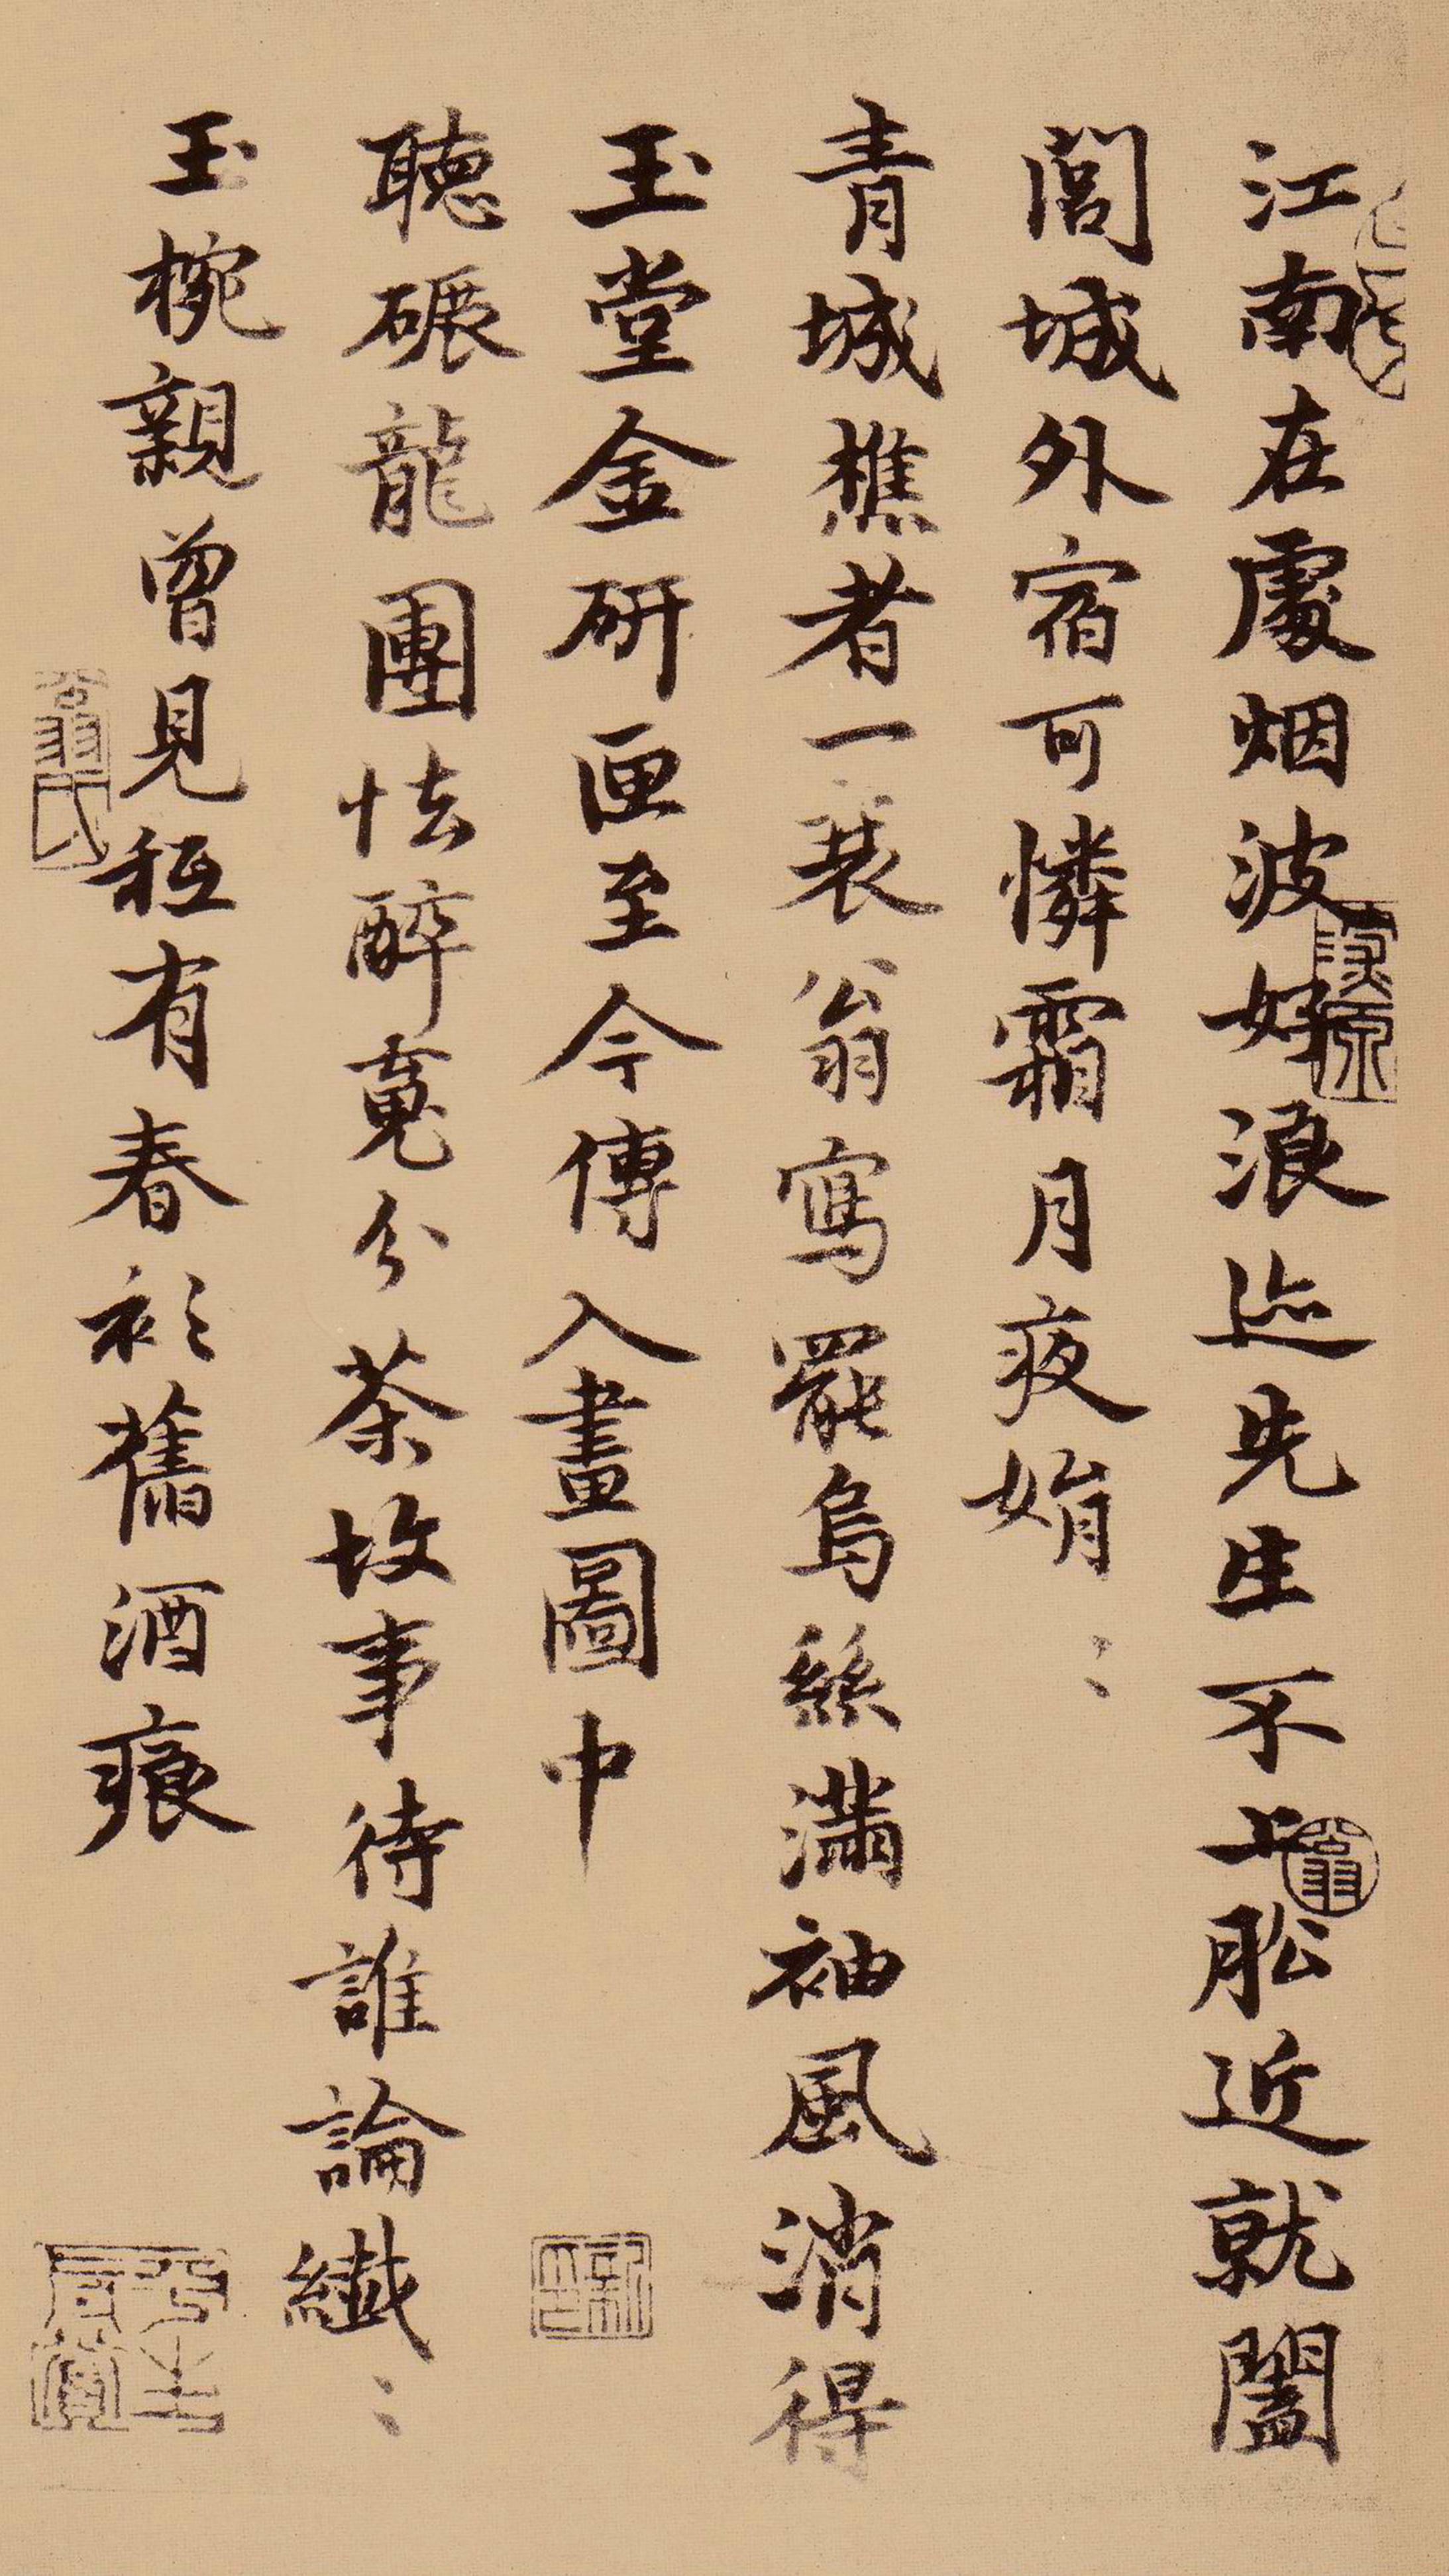 江南在處烟波好浪迹先生不上舩近就闔
閭城外宿可憐霜月夜娟〻
青城樵者一裘翁寫罷烏絲滿袖風消得
玉堂金研匣至今傳入畫圖中
聽碾龍團怯醉䰟分茶故事待誰論纖〻
玉椀親曾見秖有春衫舊酒痕